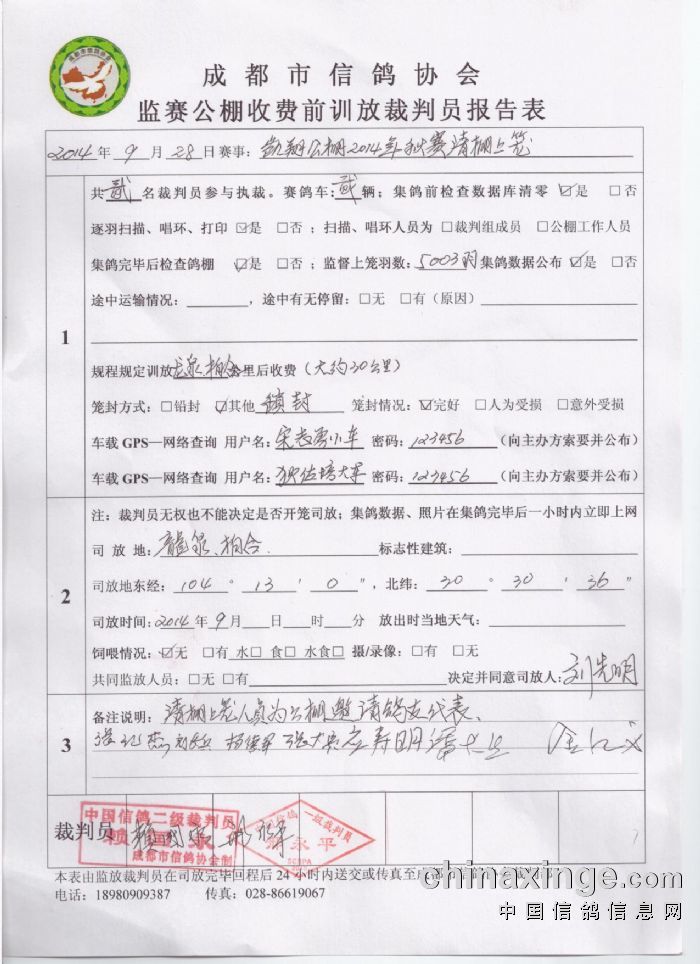 成都市信鸽协会
成都市信鸽协会
监赛公棚收费前训放裁判员报告表
2014年9月28日赛事：凯翔公棚2014年秋赛清棚上笼
1
共贰名裁判员参与执裁。赛鸽车：贰辆；集鸽前检查数据库清零 ☑是 □否
逐羽扫描、唱环、打印 ☑是 □否；扫描、唱环人员为 □裁判组成员 □公棚工作人员
集鸽完毕后检查鸽棚 ☑是 □否；监督上笼羽数：5003羽 集鸽数据公布 ☑是 □否
途中运输情况：________，途中有无停留：□无 □有（原因）
规程规定训放龙泉柏合公里后收费（大约30公里）
笼封方式：□铅封 ☑其他 鎖封 笼封情况：☑完好 □人为受损 □意外受损
车载 GPS—网络查询 用户名：宋志勇小车 密码：123456 （向主办方索要并公布）
车载 GPS—网络查询 用户名：狄佐培大车 密码：123456 （向主办方索要并公布）
2
注：裁判员无权也不能决定是否开笼司放；集鸽数据、照片在集鸽完毕后一小时内立即上网
司 放 地：龍泉、柏合. 标志性建筑：
司放地东经：104 ° 13 ′ 0 ″，北纬：30 ° 30 ′ 36 ″
司放时间：2014年9月 日 时 分 放出时当地天气：
饲喂情况：☑无 □有 水□ 食□ 水食□ 摄/录像：□有 □无
共同监放人员：□无 □有 决定并同意司放人：刘先明
3
备注说明：清棚上笼人员为公棚邀请鸽友代表、
裁判员
中国信鸽二级裁判员
成都市信鸽协会制
一级裁判员
永平
本表由监放裁判员在司放完毕回程后 24 小时内送交或传真至成都
电话：18980909387 传真：028-86619067
chinaxinge.com
中国信鸽信息网